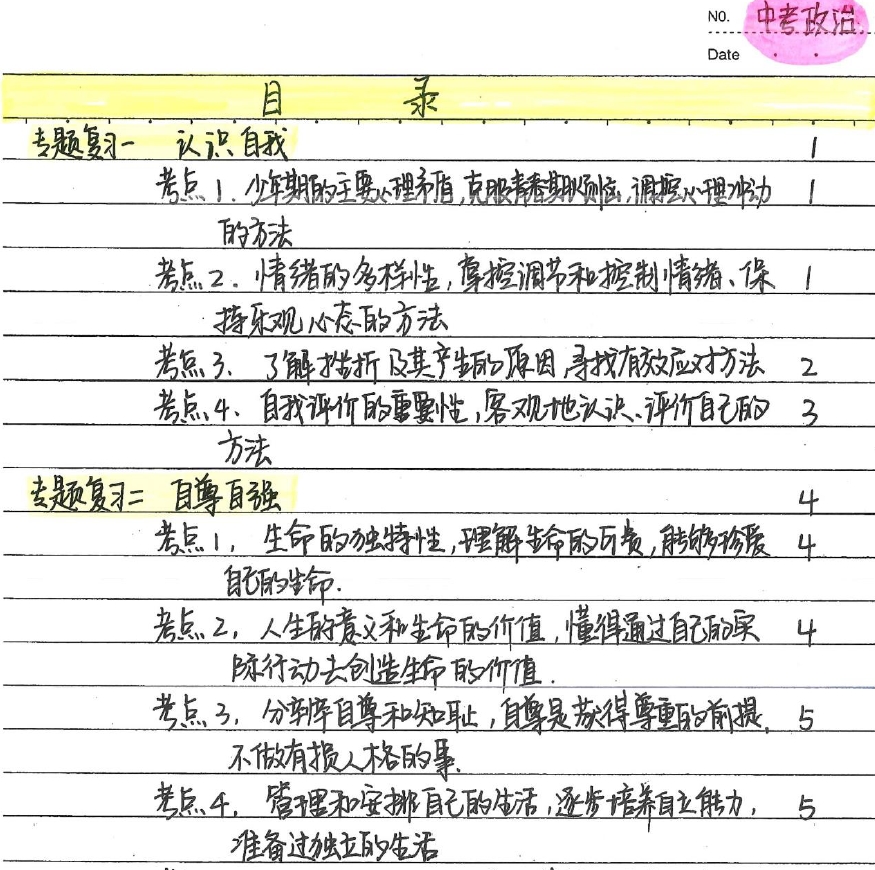 NO. 中考政治
Date
目 录
专题复习一 认识自我 1
考点1. 少年期的主要心理矛盾,克服青春期烦恼,调控心理冲动 1
的方法
考点2. 情绪的多样性,掌控调节和控制情绪、保 1
持乐观心态的方法
考点3. 了解挫折及其产生的原因,寻找有效应对方法 2
考点4. 自我评价的重要性,客观地认识、评价自己的 3
方法
专题复习二 自尊自强 4
考点1, 生命的独特性,理解生命的可贵,能够珍爱 4
自己的生命.
考点2, 人生的意义和生命的价值,懂得通过自己的实 4
际行动去创造生命的价值.
考点3, 分辨自尊和知耻,自尊是获得尊重的前提, 5
不做有损人格的事.
考点4, 管理和安排自己的生活,逐步培养自立能力, 5
准备过独立的生活